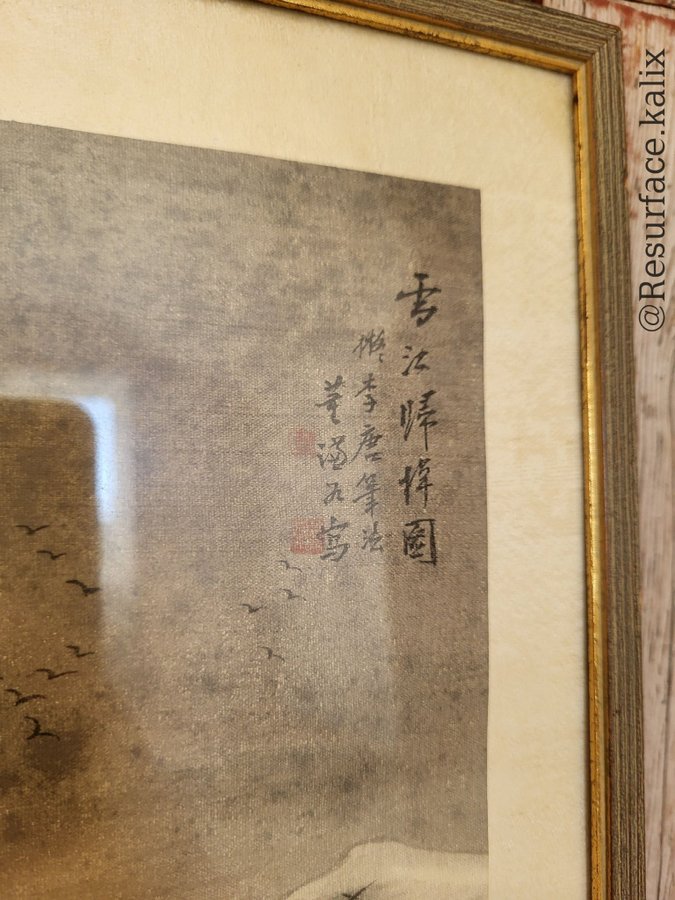 雪江歸棹圖
擬李唐筆法
董寫
@Resurface.kalix